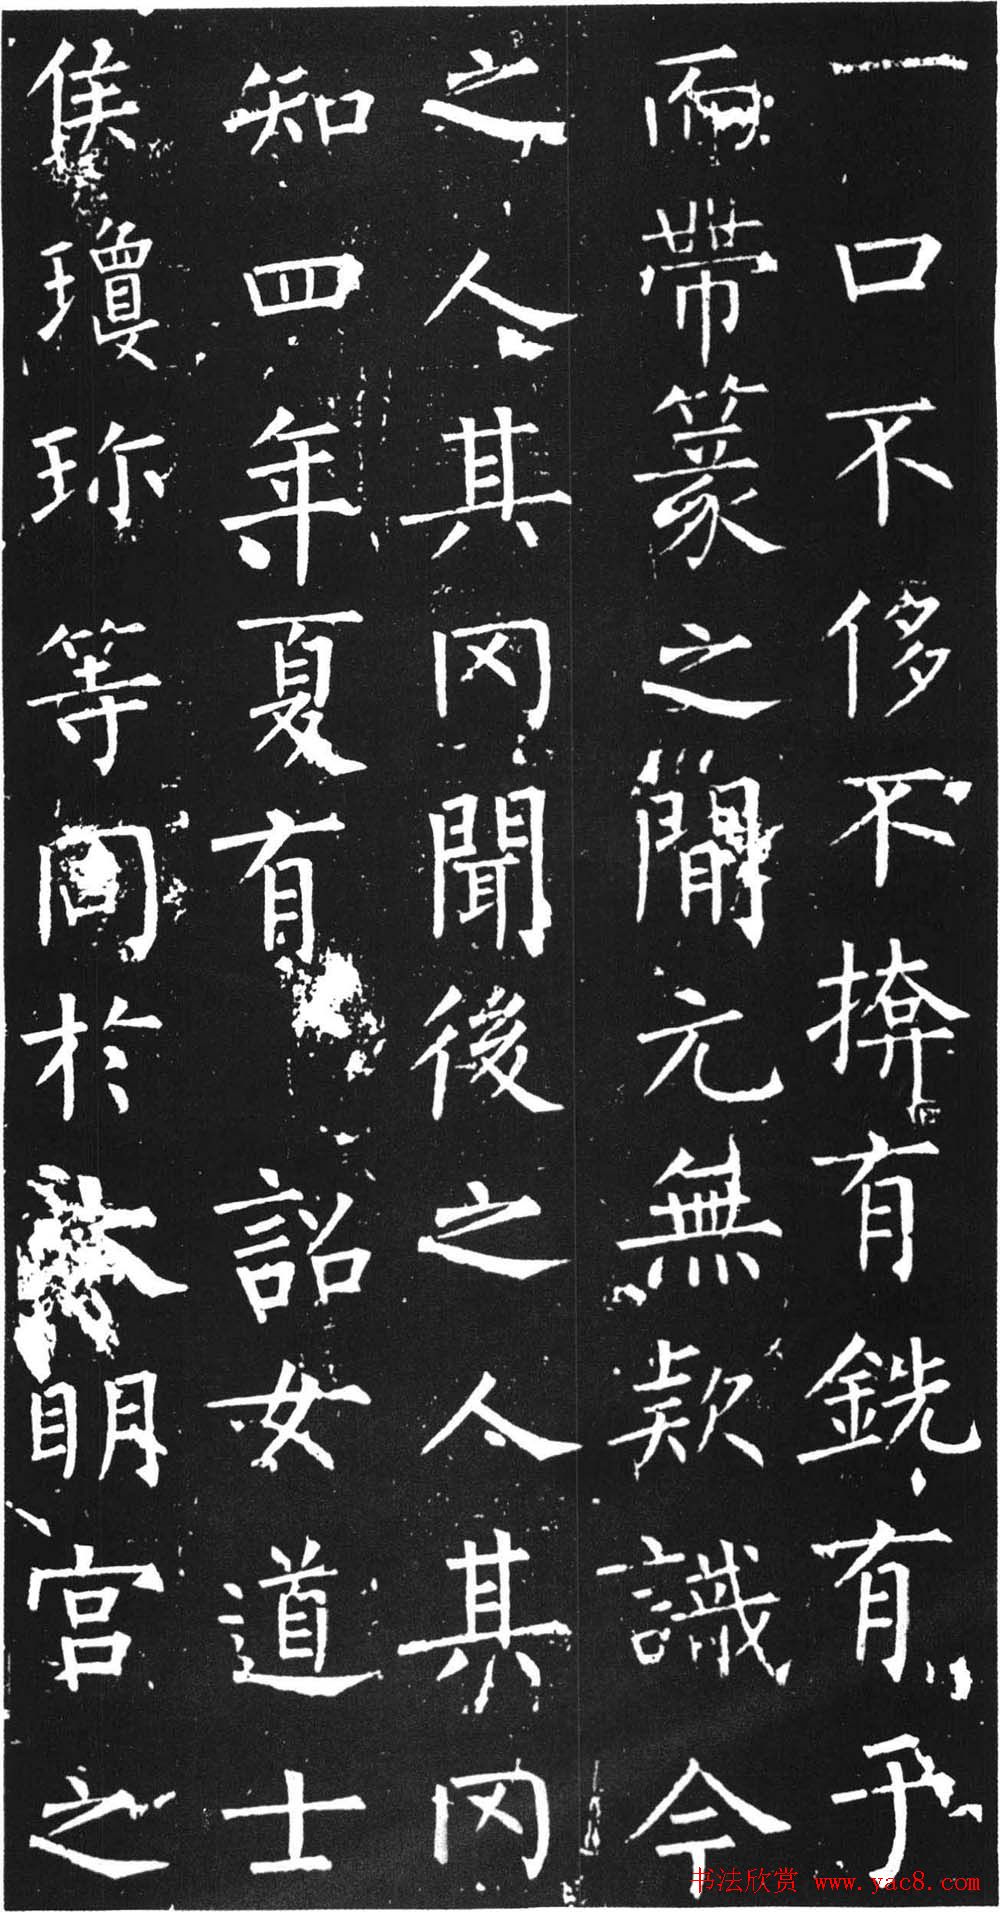 一口不侈不揜有銑有于
而帶篆之間元無款識今
之人其罔聞後之人其罔
知四年夏有詔女道士
侯瓊珎等同於大明宮之
书法欣赏 www.yac8.com